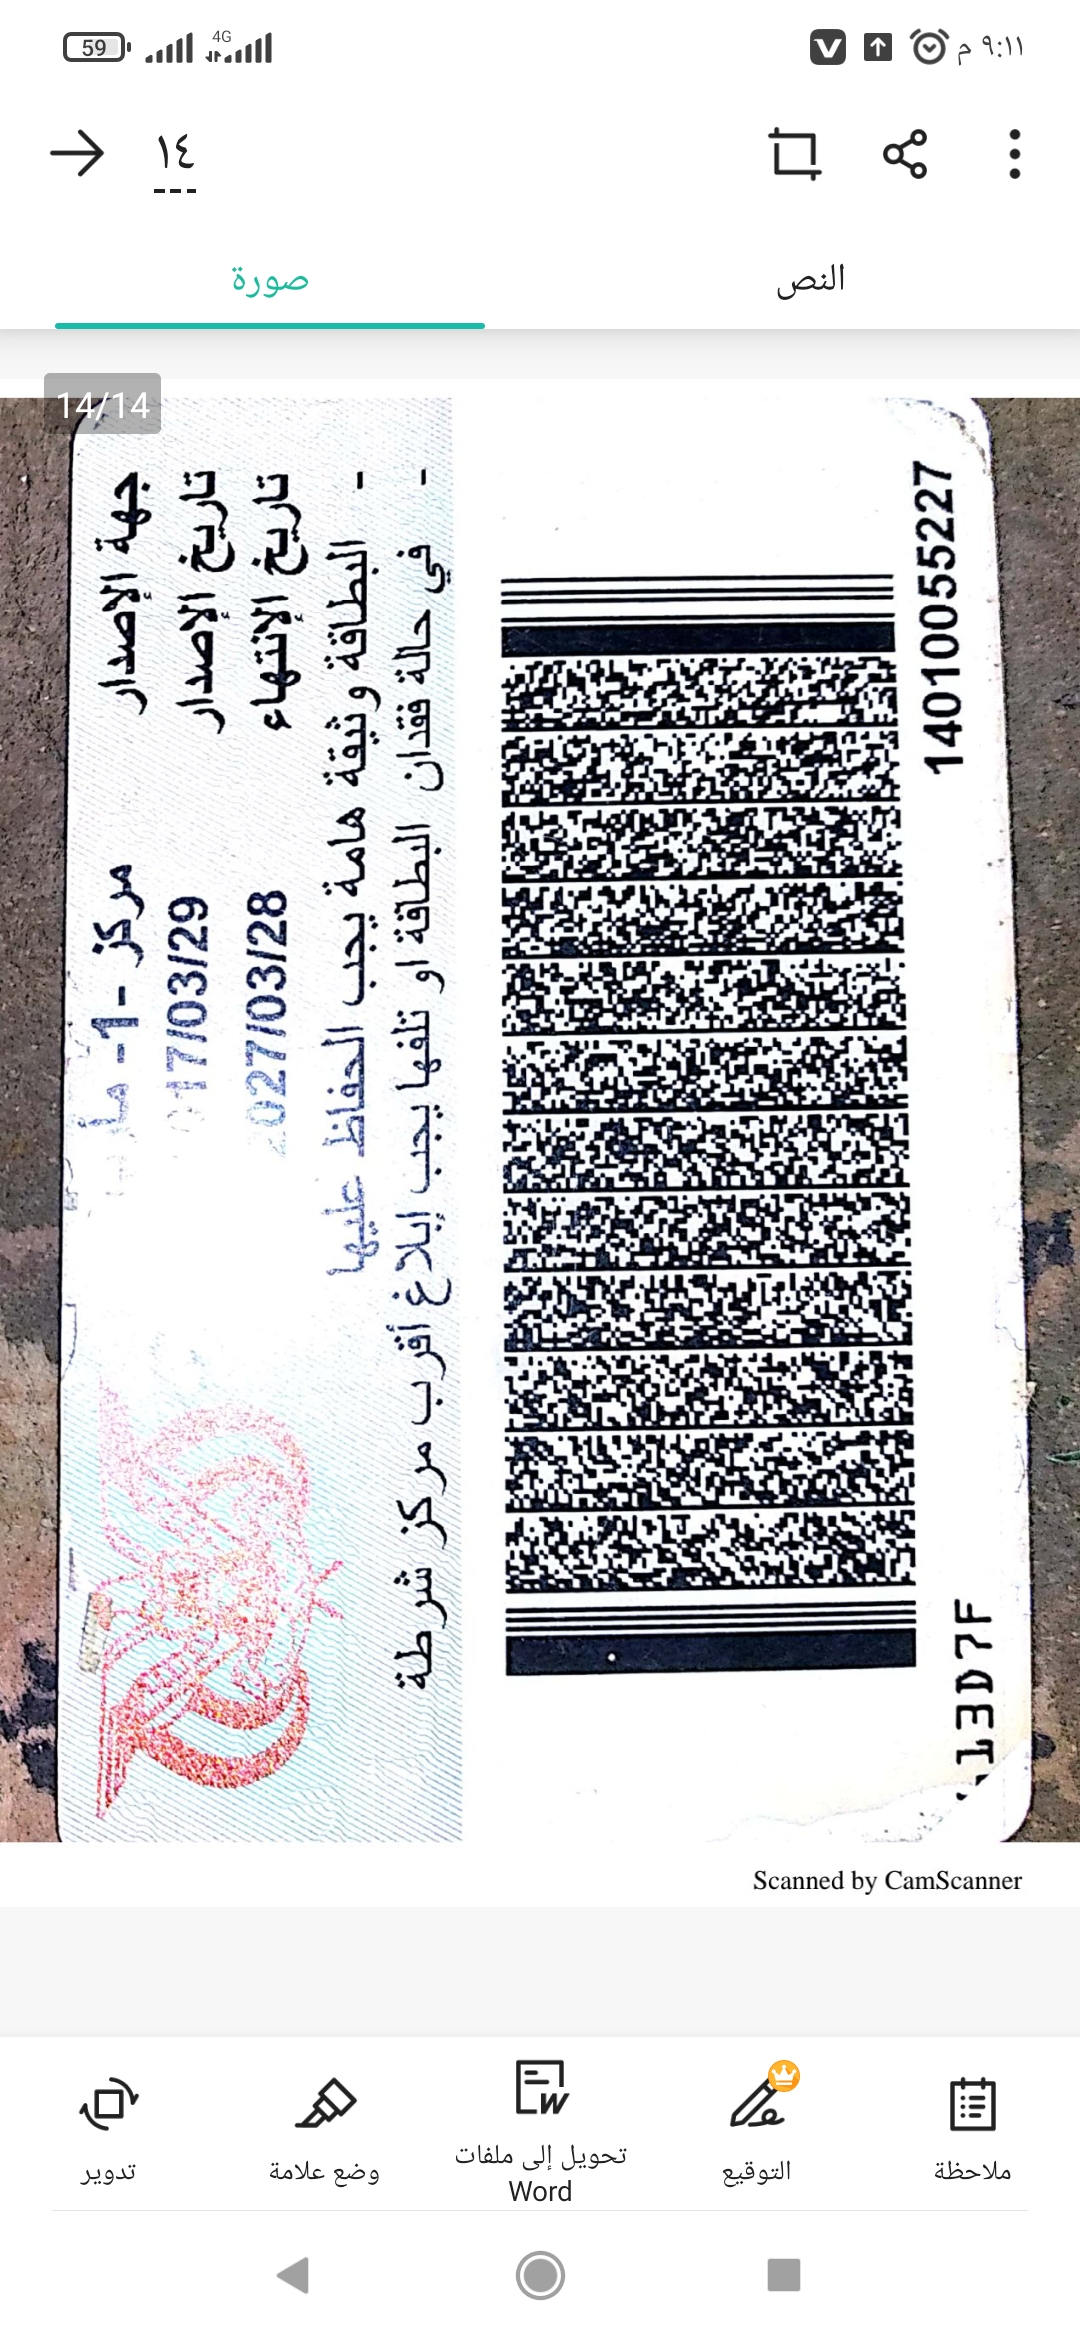 59
4G
٩:١١ م
١٤
صورة
النص
14/14
جهة الإصدار مركز -1-
تاريخ الإصدار 17/03/29
تاريخ الإنتهاء 027/03/28
- البطاقة وثيقة هامة يجب الحفاظ عليها
- في حالة فقدان البطاقة او تلفها يجب إبلاغ أقرب مركز شرطة
14010055227
13D7F
Scanned by CamScanner
تدوير
وضع علامة
تحويل إلى ملفات
Word
التوقيع
ملاحظة